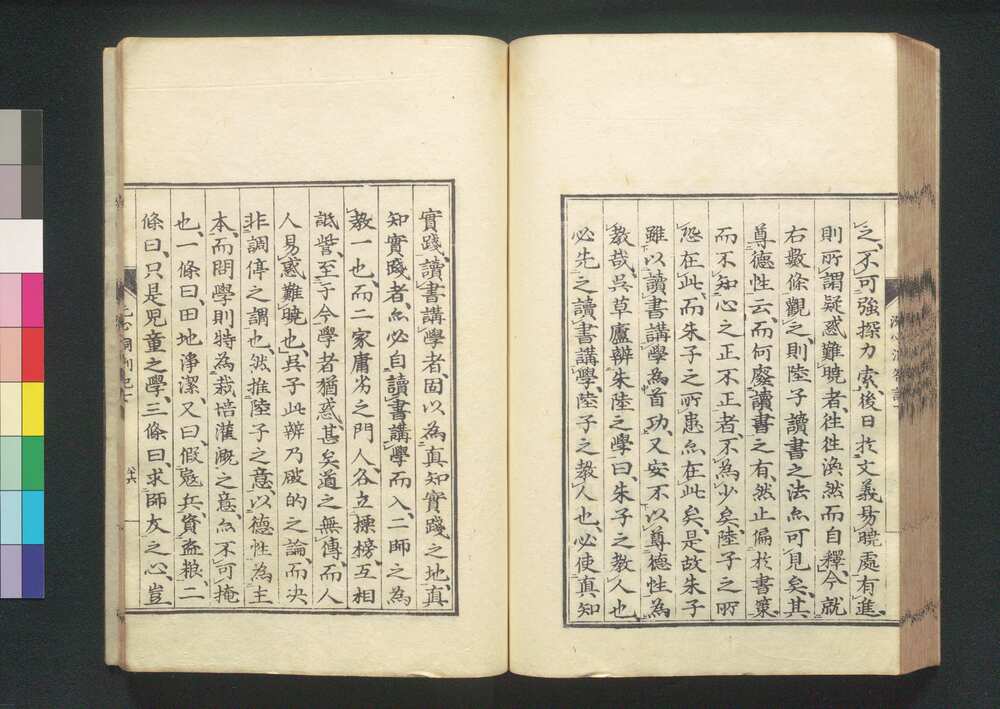 之、不可強探力索、後日於文義易曉處有進、
則所謂疑惑難曉者、往往渙然而自釋、今就
右數條觀之、則陸子讀書之法亦可見矣、其
尊德性云、而何廢讀書之有、然止偏於書策、
而不知心之正不正者、不為少矣、陸子之所
怨在此、而朱子之所患亦在此矣、是故朱子
雖以讀書講學為首功、又安不以尊德性為
教哉、吳草廬辨朱陸之學曰、朱子之教人也、
必先之讀書講學、陸子之教人也、必使真知
實踐、讀書講學者、固以為真知實踐之地、真
知實踐者、亦必自讀書講學而入、二師之為
教一也、而二家庸劣之門人、各立標榜、互相
詆訾、至于今學者猶惑、甚矣道之無傳、而人
人易惑難曉也、吳子此辨乃破的之論、而決
非調停之謂也、然推陸子之意、以德性為主
本、而問學則特為栽培灌溉之意、亦不可掩
也、一條曰、田地淨潔、又曰、假寇兵、資盜粮、二
條曰、只是兒童之學、三條曰求師友之心豈
六六